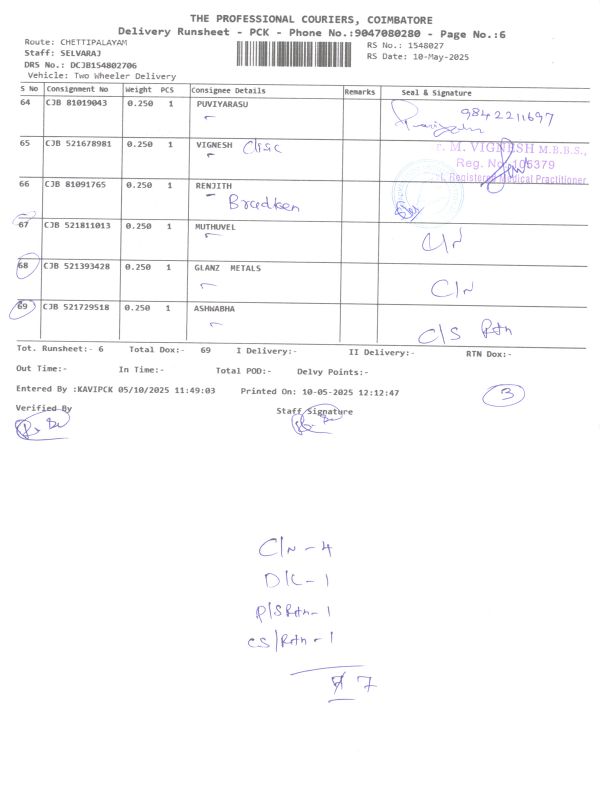 THE PROFESSIONAL COURIERS, COIMBATORE
Delivery Runsheet - PCK - Phone No.:9047080280 - Page No.:6
Route: CHETTIPALAYAM RS No.: 1548027
Staff: SELVARAJ RS Date: 10-May-2025
DRS No.: DCJB154802706
Vehicle: Two Wheeler Delivery
S No Consignment No Weight PCS Consignee Details Remarks Seal & Signature
64 CJB 81019043 0.250 1 PUVIYARASU 9842211697
65 CJB 521678981 0.250 1 VIGNESH Clinic
M. VIGNESH M.B.B.S.,
Reg. No. 106379
Registered Medical Practitioner
66 CJB 81091765 0.250 1 RENJITH
Bradken
67 CJB 521811013 0.250 1 MUTHUVEL C/N
68 CJB 521393428 0.250 1 GLANZ METALS C/N
69 CJB 521729518 0.250 1 ASHWABHA C/S Rtn
Tot. Runsheet:- 6 Total Dox:- 69 I Delivery:- II Delivery:- RTN Dox:-
Out Time:- In Time:- Total POD:- Delvy Points:-
Entered By :KAVIPCK 05/10/2025 11:49:03 Printed On: 10-05-2025 12:12:47 3
Verified By Staff Signature
C/N - 4
D/L - 1
P/S Rtn - 1
CS/Rtn - 1
7